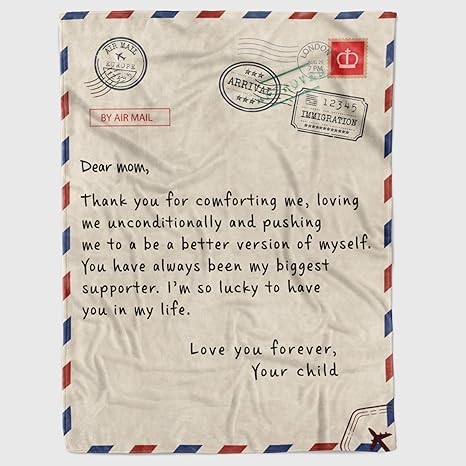 AIR MAIL
EUROPE
12345
LONDON
AUG 29
7 PM
ARRIVAL
12345
IMMIGRATION
BY AIR MAIL
Dear mom,
Thank you for comforting me, loving
me unconditionally and pushing
me to a be a better version of myself.
You have always been my biggest
supporter. I'm so lucky to have
you in my life.
Love you forever,
Your child